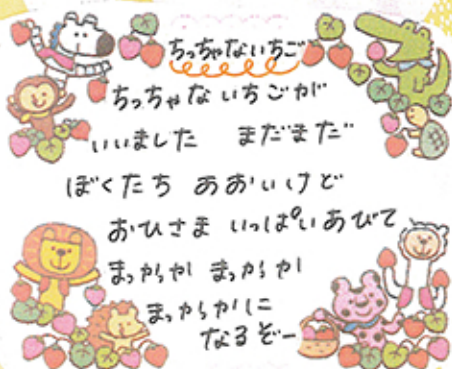 ちっちゃないちご
ちっちゃな いちごが
いいました まだまだ
ぼくたち あおいけど
おひさま いっぱいあびて
まっかっか まっかっか
まっかっかに
なるぞー